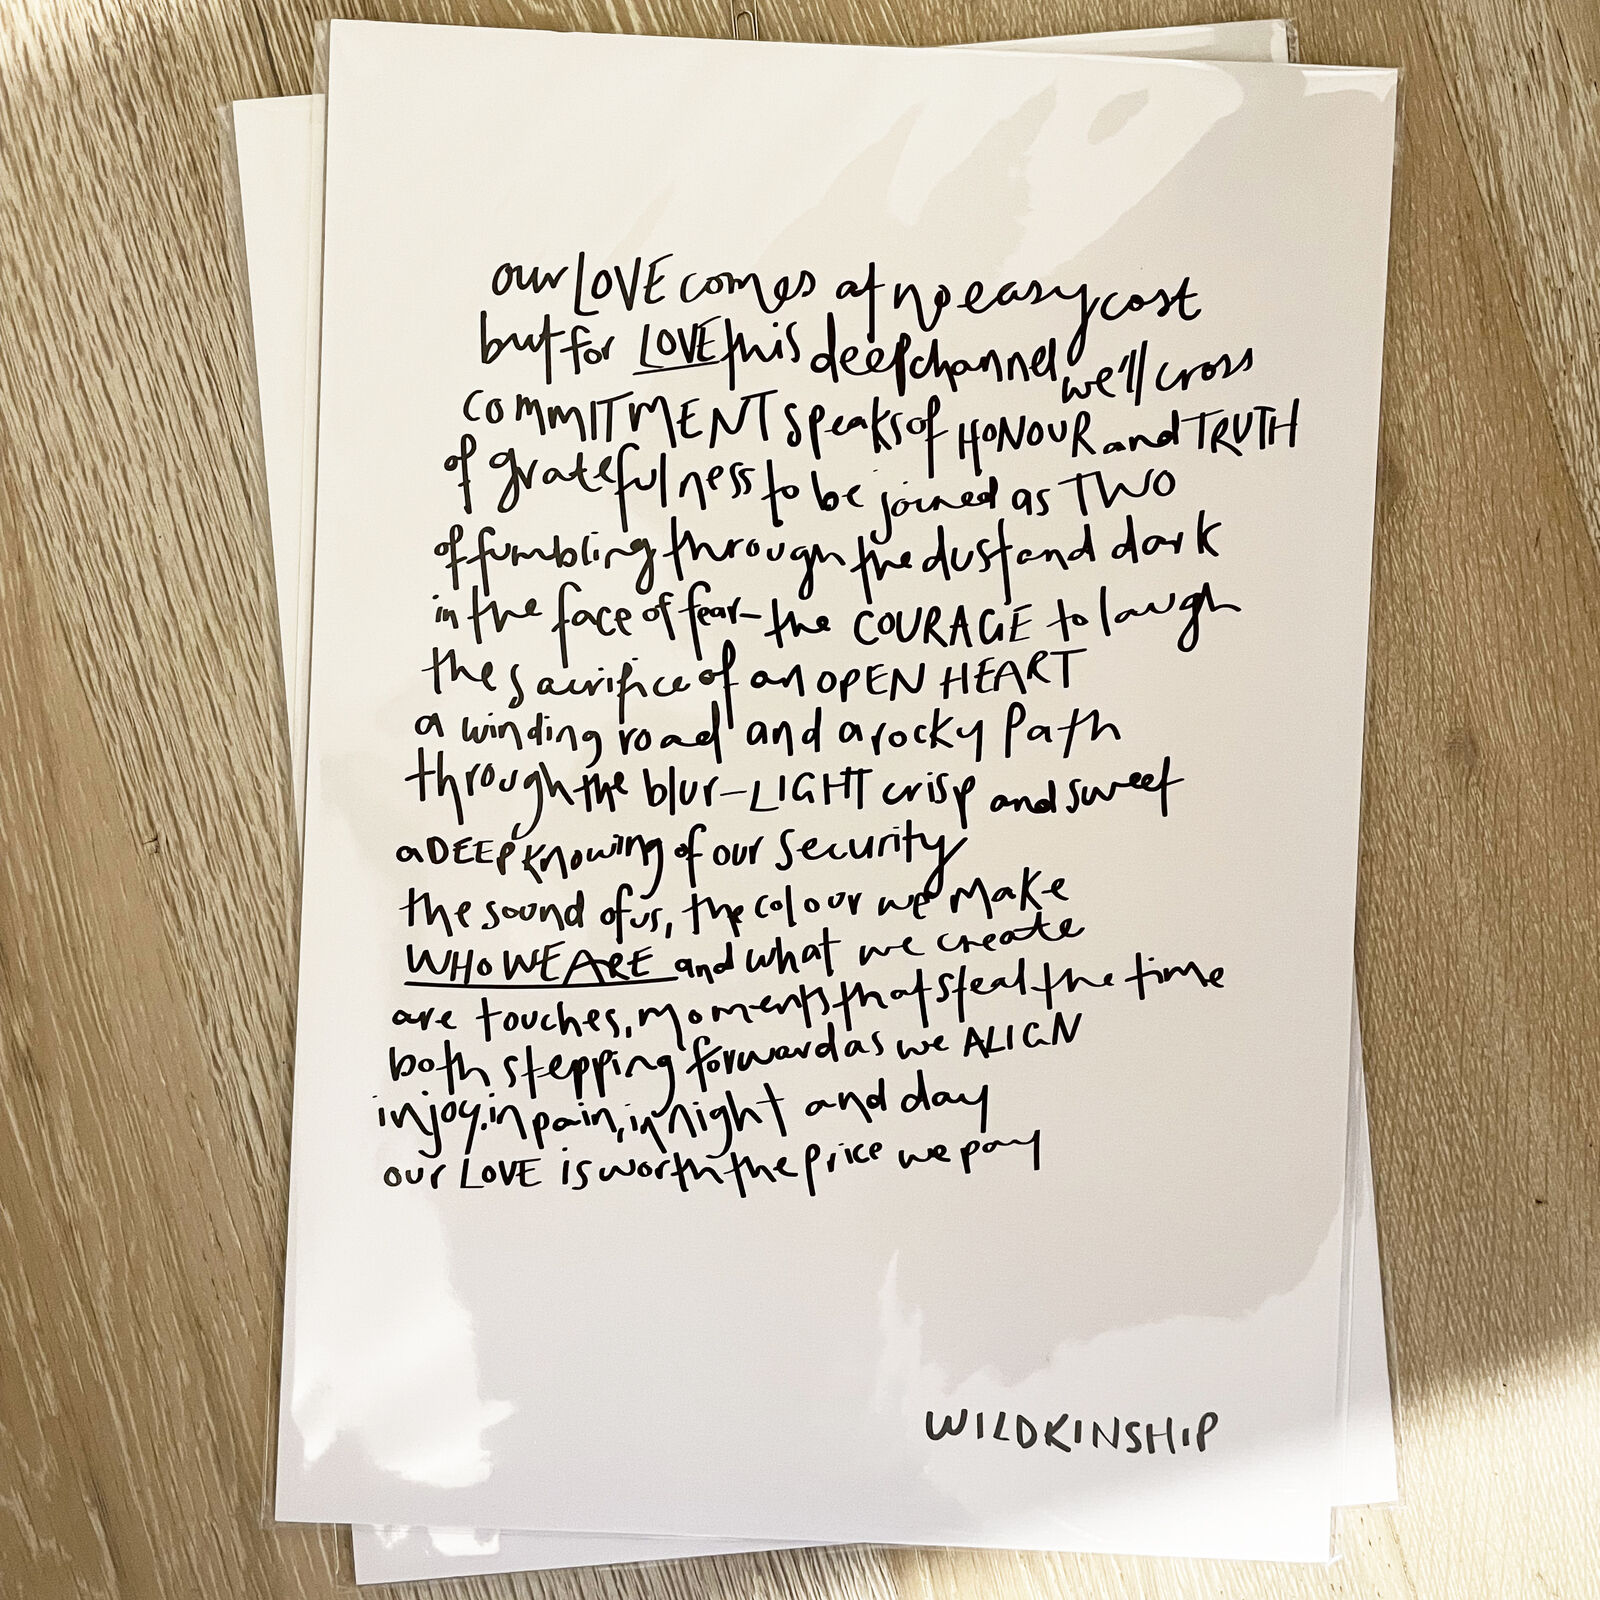 our LOVE comes at no easy cost
but for LOVE this deep channel we'll cross
COMMITMENT speaks of HONOUR and TRUTH
of gratefulness to be joined as TWO
of fumbling through the dust and dark
in the face of fear - the COURAGE to laugh
the sacrifice of an OPEN HEART
a winding road and a rocky path
through the blur - LIGHT crisp and sweet
a DEEP knowing of our security
the sound of us, the colour we make
WHO WE ARE and what we create
are touches, moments that steal the time
both stepping forward as we ALIGN
in joy, in pain, in night and day
our LOVE is worth the price we pay
WILDKINSHIP